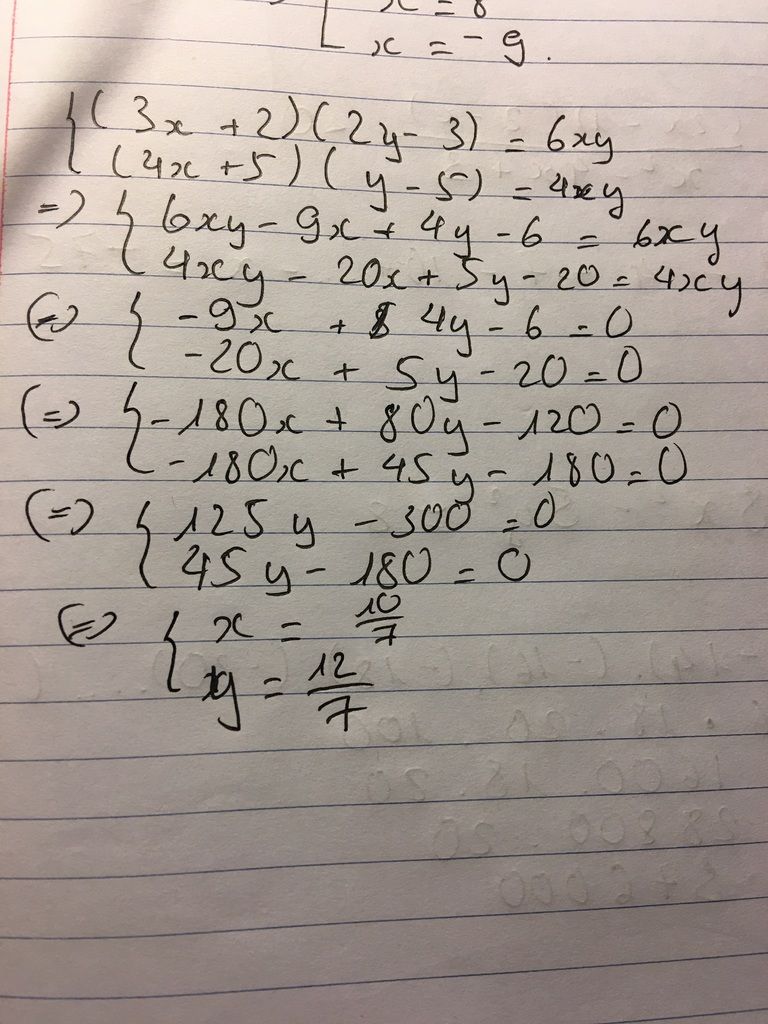 x = 8
x = -9.
(3x + 2)(2y - 3) = 6xy
(4x + 5)(y - 5) = 4xy
=> 6xy - 9x + 4y - 6 = 6xy
4xy - 20x + 5y - 20 = 4xy
(=) -9x + 4y - 6 = 0
-20x + 5y - 20 = 0
(=) -180x + 80y - 120 = 0
-180x + 45y - 180 = 0
(=) 125y - 300 = 0
45y - 180 = 0
(=) x = 10/7
y = 12/7